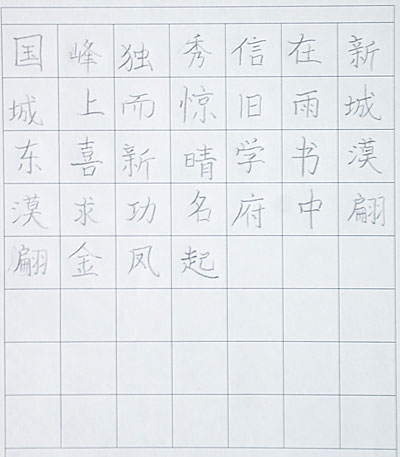 国峰独秀信在新
城上而惊旧雨城
东喜新晴学书漠
漠求功名府中翩
翩金凤起